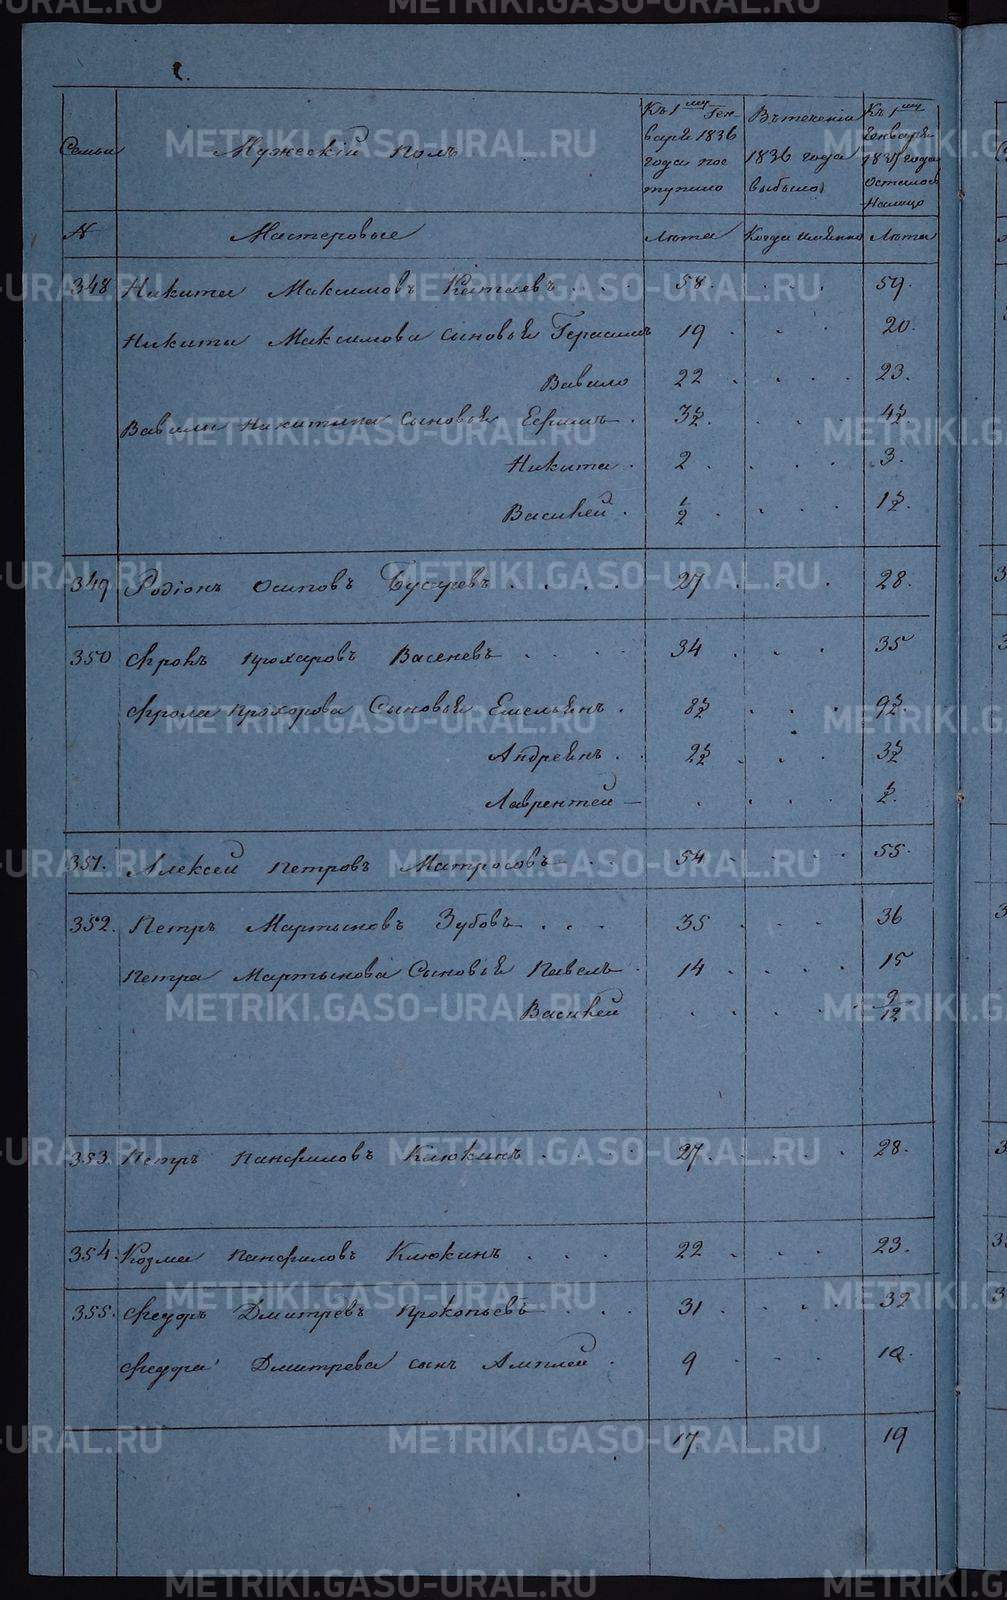 Семьи
Мужескій полъ
Къ 1му Ген-
варя 1836
года пос
тупило
Въ теченіи
1836 года
выбыло
Къ 1му
Генваря
1837 года
осталось
Налицо
№ Мастеровые Лѣта Когда имянно Лѣта
348 Никита Максимовъ Китаевъ 58. 59.
Никиты Максимова сыновья Герасимъ 19 20.
Вавило 22 23.
Вавилы Никитина сыновья Ефимъ 3½ 4½
Никита 2 3.
Василей ½ 1½
349 Родіонъ Осиповъ 27 28.
350 Фролъ Прохоровъ Васеневъ 34 35
Фрола Прохорова Сыновья Емельянъ 8½ 9½
Андреянъ 2½ 3½
Лаврентей ½.
351. Алексей Петровъ Матросовъ 54 55.
352. Петръ Мартыновъ Зубовъ 35 36
Петра Мартынова Сыновья Павелъ 14 15
Василей 9/12
353. Петръ Панфиловъ Клюкинъ 27. 28.
354. Козма Панфиловъ Клюкинъ 22 23.
355. Федоръ Дмитревъ Прокопьевъ 31 32
Федора Дмитрева сынъ Амплей 9 10.
17. 19
METRIKI.GASO-URAL.RU